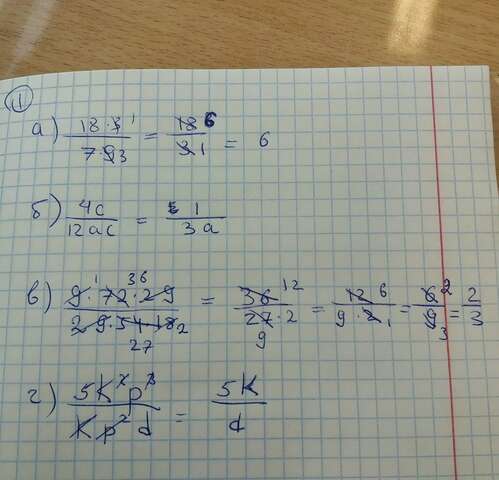 1
а) 18·3 1 / 7·9 3 = 18 6 / 3 1 = 6
б) 4c / 12ac = 1 / 3a
в) 9 1·72 36·29 / 29·54 27·18 2 = 36 12 / 27 9·2 = 12 6 / 9·2 1 = 6 2 / 9 3 = 2 / 3
г) 5k²p² / kp²d = 5k / d